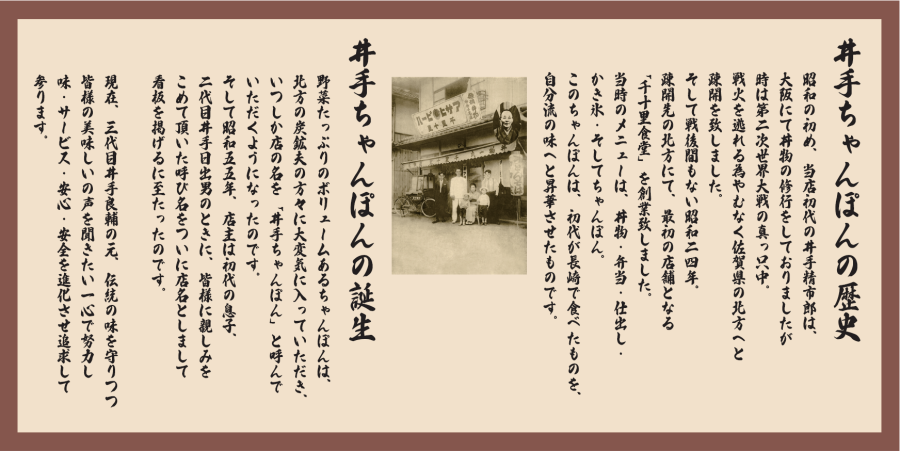 井手ちゃんぽんの歴史
昭和の初め、当店初代の井手精市郎は、
大阪にて丼物の修行をしておりましたが
時は第二次世界大戦の真っ只中。
戦火を逃れる為やむなく佐賀県の北方へと
疎開を致しました。
そして戦後間もない昭和二四年。
疎開先の北方にて、最初の店舗となる
「千十里食堂」を創業致しました。
当時のメニューは、丼物・弁当・仕出し・
かき氷・そしてちゃんぽん。
このちゃんぽんは、初代が長崎で食べたものを、
自分流の味へと昇華させたものです。
アサヒキビール
井手ちゃんぽんの誕生
野菜たっぷりのボリュームあるちゃんぽんは、
北方の炭鉱夫の方々に大変気に入っていただき、
いつしか店の名を「井手ちゃんぽん」と呼んで
いただくようになったのです。
そして昭和五五年、店主は初代の息子、
二代目井手日出男のときに、皆様に親しみを
こめて頂いた呼び名をついに店名としまして
看板を掲げるに至ったのです。
現在、三代目井手良輔の元、伝統の味を守りつつ
皆様の美味しいの声を聞きたい一心で努力し
味・サービス・安心・安全を進化させ追求して
参ります。